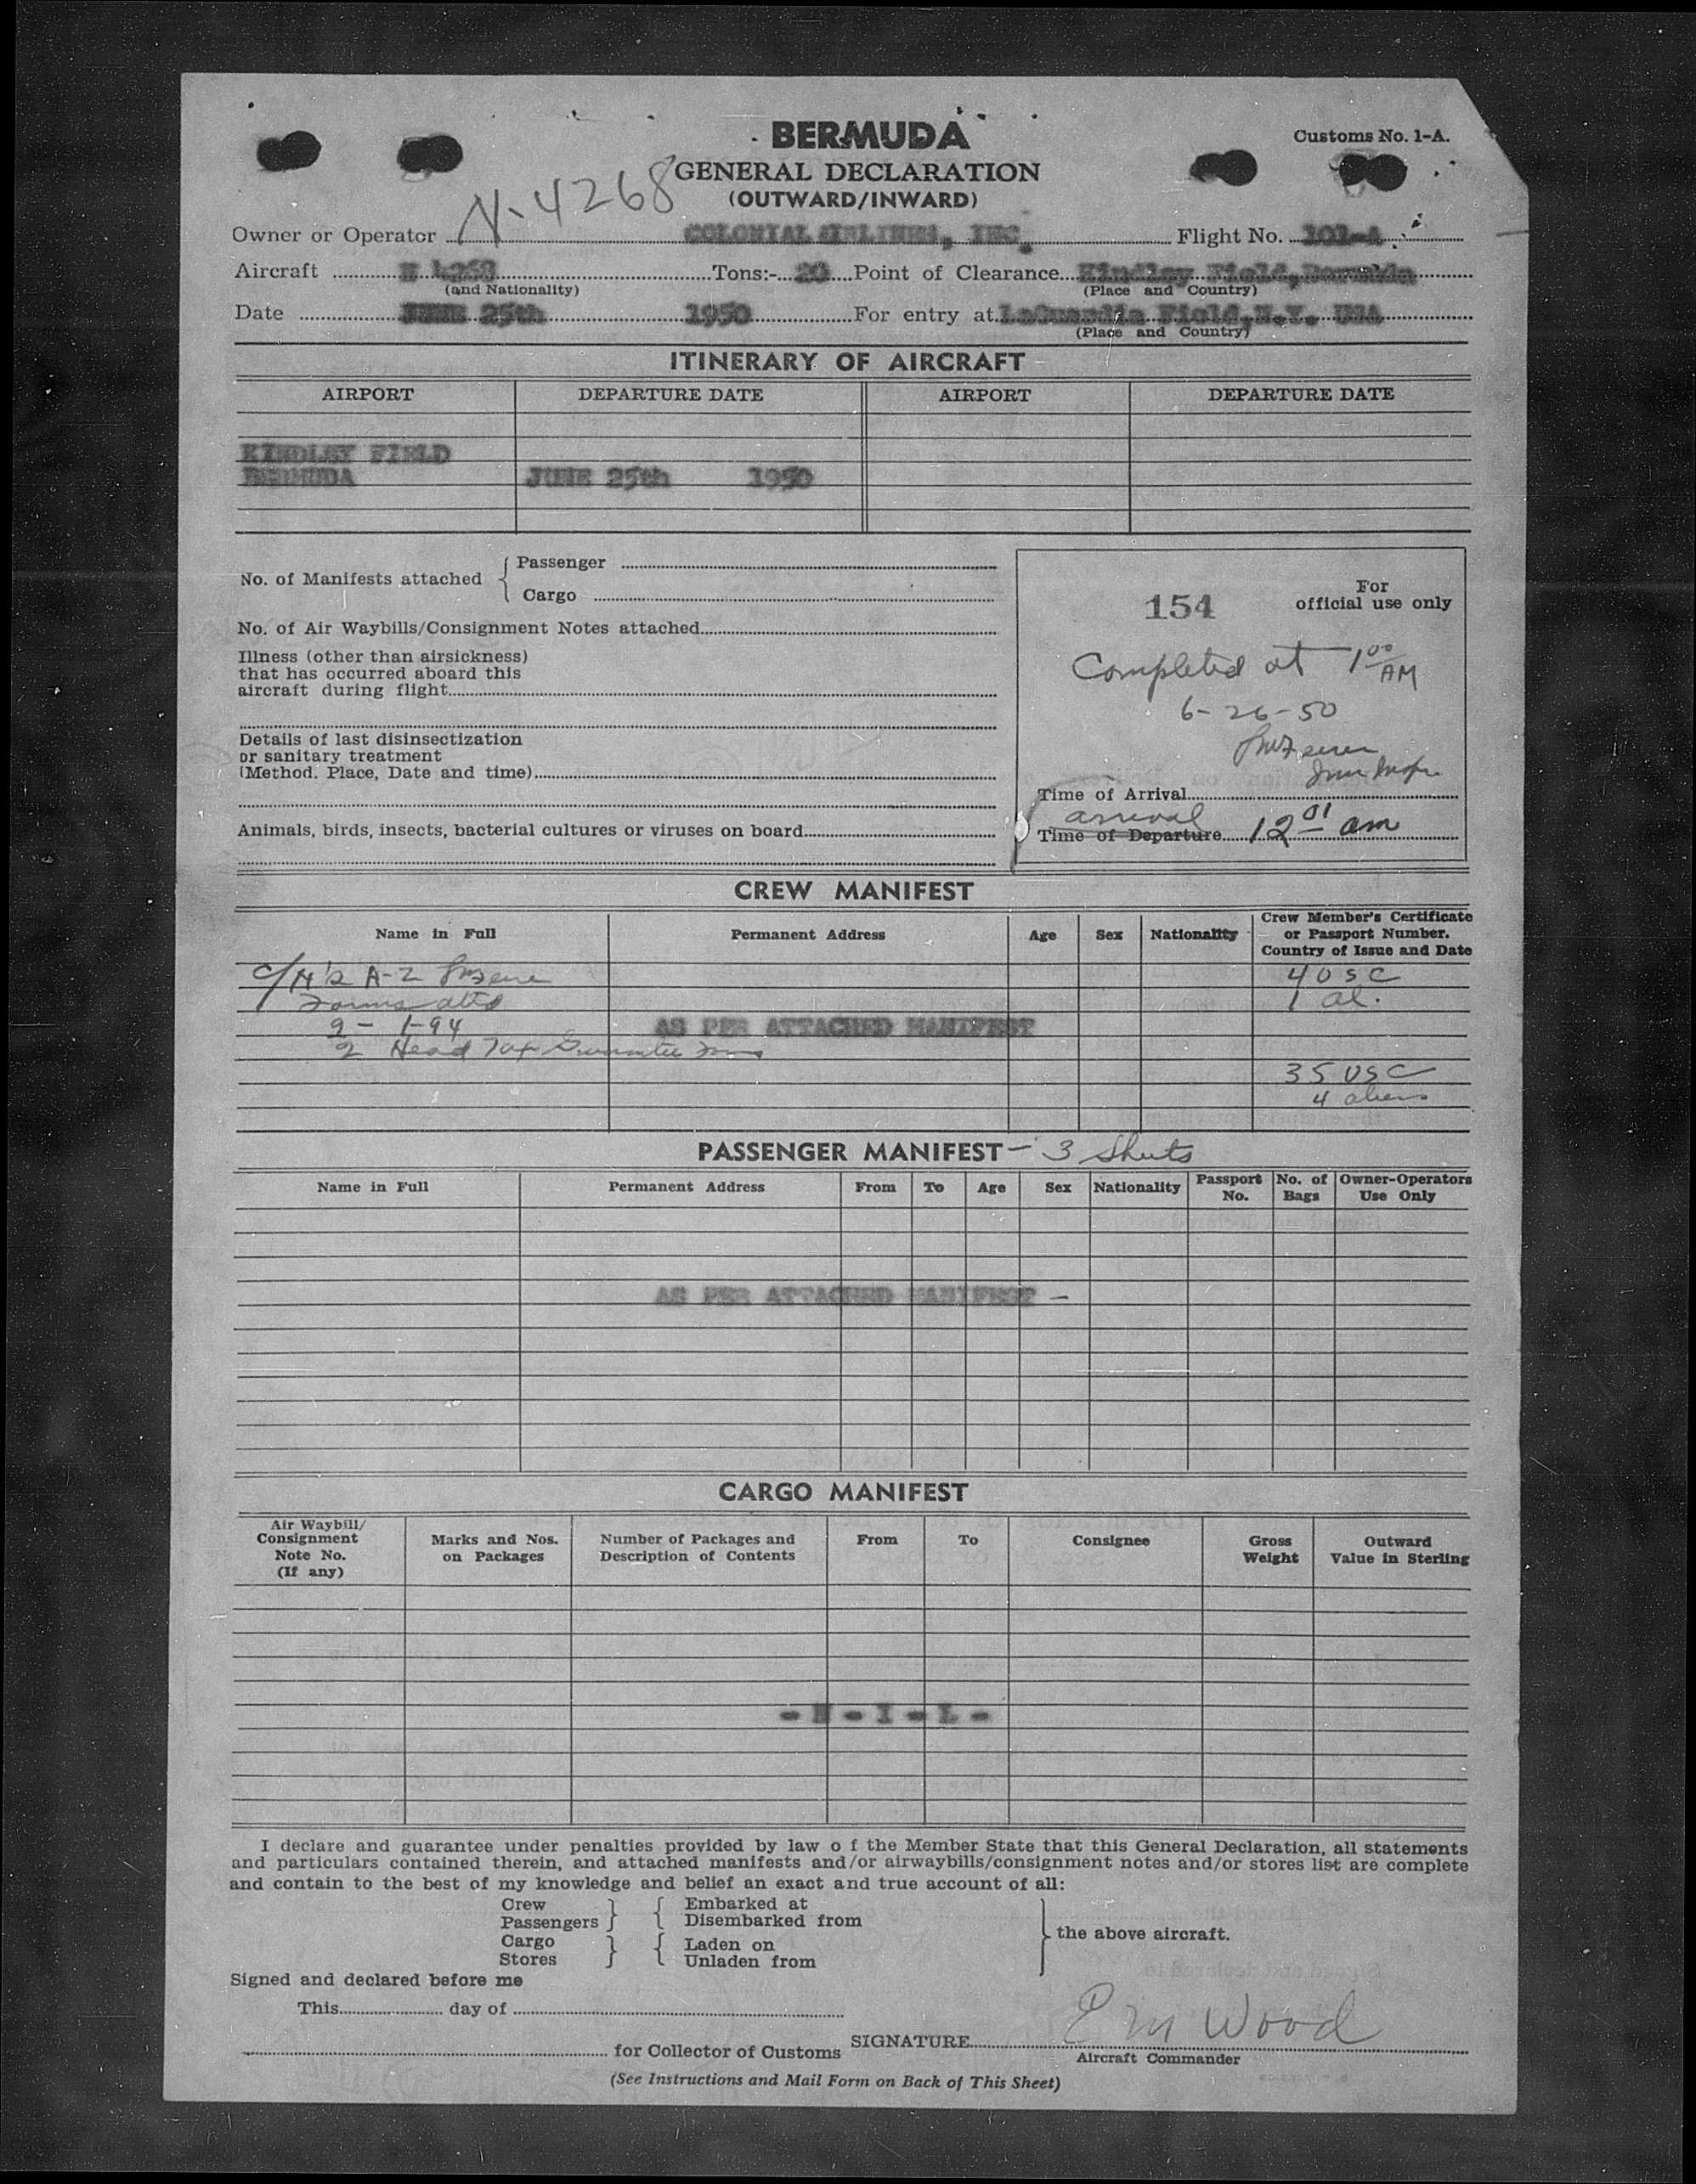 BERMUDA
Customs No. 1-A.
GENERAL DECLARATION
(OUTWARD/INWARD)
N-4268
Owner or Operator COLONIAL AIRLINES, INC. Flight No. 101-A
Aircraft N 4268 Tons:- 20 Point of Clearance Kindley Field, Bermuda
(and Nationality) (Place and Country)
Date JUNE 25th 1950 For entry at LaGuardia Field, N.Y. USA
(Place and Country)
ITINERARY OF AIRCRAFT
AIRPORT DEPARTURE DATE AIRPORT DEPARTURE DATE
KINDLEY FIELD
BERMUDA JUNE 25th 1950
No. of Manifests attached { Passenger
Cargo
No. of Air Waybills/Consignment Notes attached
Illness (other than airsickness)
that has occurred aboard this
aircraft during flight
Details of last disinsectization
or sanitary treatment
(Method. Place, Date and time)
Animals, birds, insects, bacterial cultures or viruses on board
For
official use only
154
Completed at 1 00 AM
6-26-50
Time of Arrival
arrival
Time of Departure 12 01 am
CREW MANIFEST
Name in Full Permanent Address Age Sex Nationality Crew Member's Certificate
or Passport Number.
Country of Issue and Date
A-2 4 USC
Forms attd 1 al.
2 - I-94 AS PER ATTACHED MANIFEST
2 Head Tax Guarantee
35 USC
4 aliens
PASSENGER MANIFEST - 3 Sheets
Name in Full Permanent Address From To Age Sex Nationality Passport No. No. of Bags Owner-Operators Use Only
AS PER ATTACHED MANIFEST -
CARGO MANIFEST
Air Waybill/
Consignment
Note No.
(If any) Marks and Nos.
on Packages Number of Packages and
Description of Contents From To Consignee Gross
Weight Outward
Value in Sterling
- N - I - L -
I declare and guarantee under penalties provided by law o f the Member State that this General Declaration, all statements
and particulars contained therein, and attached manifests and/or airwaybills/consignment notes and/or stores list are complete
and contain to the best of my knowledge and belief an exact and true account of all:
Crew } { Embarked at
Passengers } { Disembarked from
Cargo } { Laden on
Stores } { Unladen from
} the above aircraft.
Signed and declared before me
This day of
for Collector of Customs SIGNATURE E M Wood
Aircraft Commander
(See Instructions and Mail Form on Back of This Sheet)